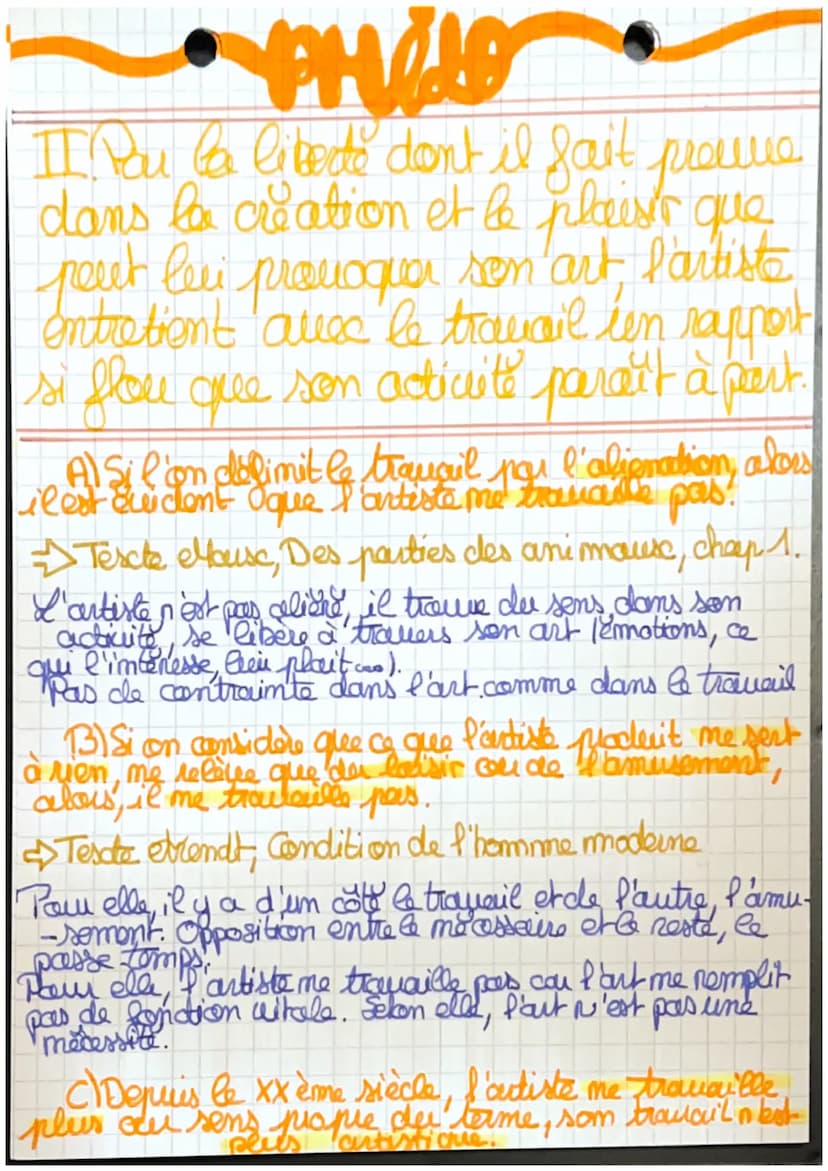 PHILO
II. Par la liberté dont il fait preuve
dans la création et le plaisir que
peut lui provoquer son art, l'artiste
entretient avec le travail un rapport
si flou que son activité paraît à part.
A) Si l'on définit le travail par l'aliénation, alors
il est évident que l'artiste ne travaille pas.
⇒ Texte Marx, Des parties des animaux, chap 1.
L'artiste n'est pas aliéné, il trouve du sens dans son
activité, se libère à travers son art (émotions, ce
qui l'intéresse, lui plait ...).
Pas de contrainte dans l'art comme dans le travail
B) Si on considère que ce que l'artiste produit ne sert
à rien, ne relève que du loisir ou de l'amusement,
alors, il ne travaille pas.
⇒ Texte Arendt, Condition de l'homme moderne
Pour elle, il y a d'un côté le travail et de l'autre, l'amu-
-sement. Opposition entre le nécessaire et le reste, le
passe temps.
Pour elle, l'artiste ne travaille pas car l'art ne remplit
pas de fonction vitale. Selon elle, l'art n'est pas une
nécessité.
C) Depuis le XXème siècle, l'artiste ne travaille
plus au sens propre du terme, son travail n'est
plus artistique.